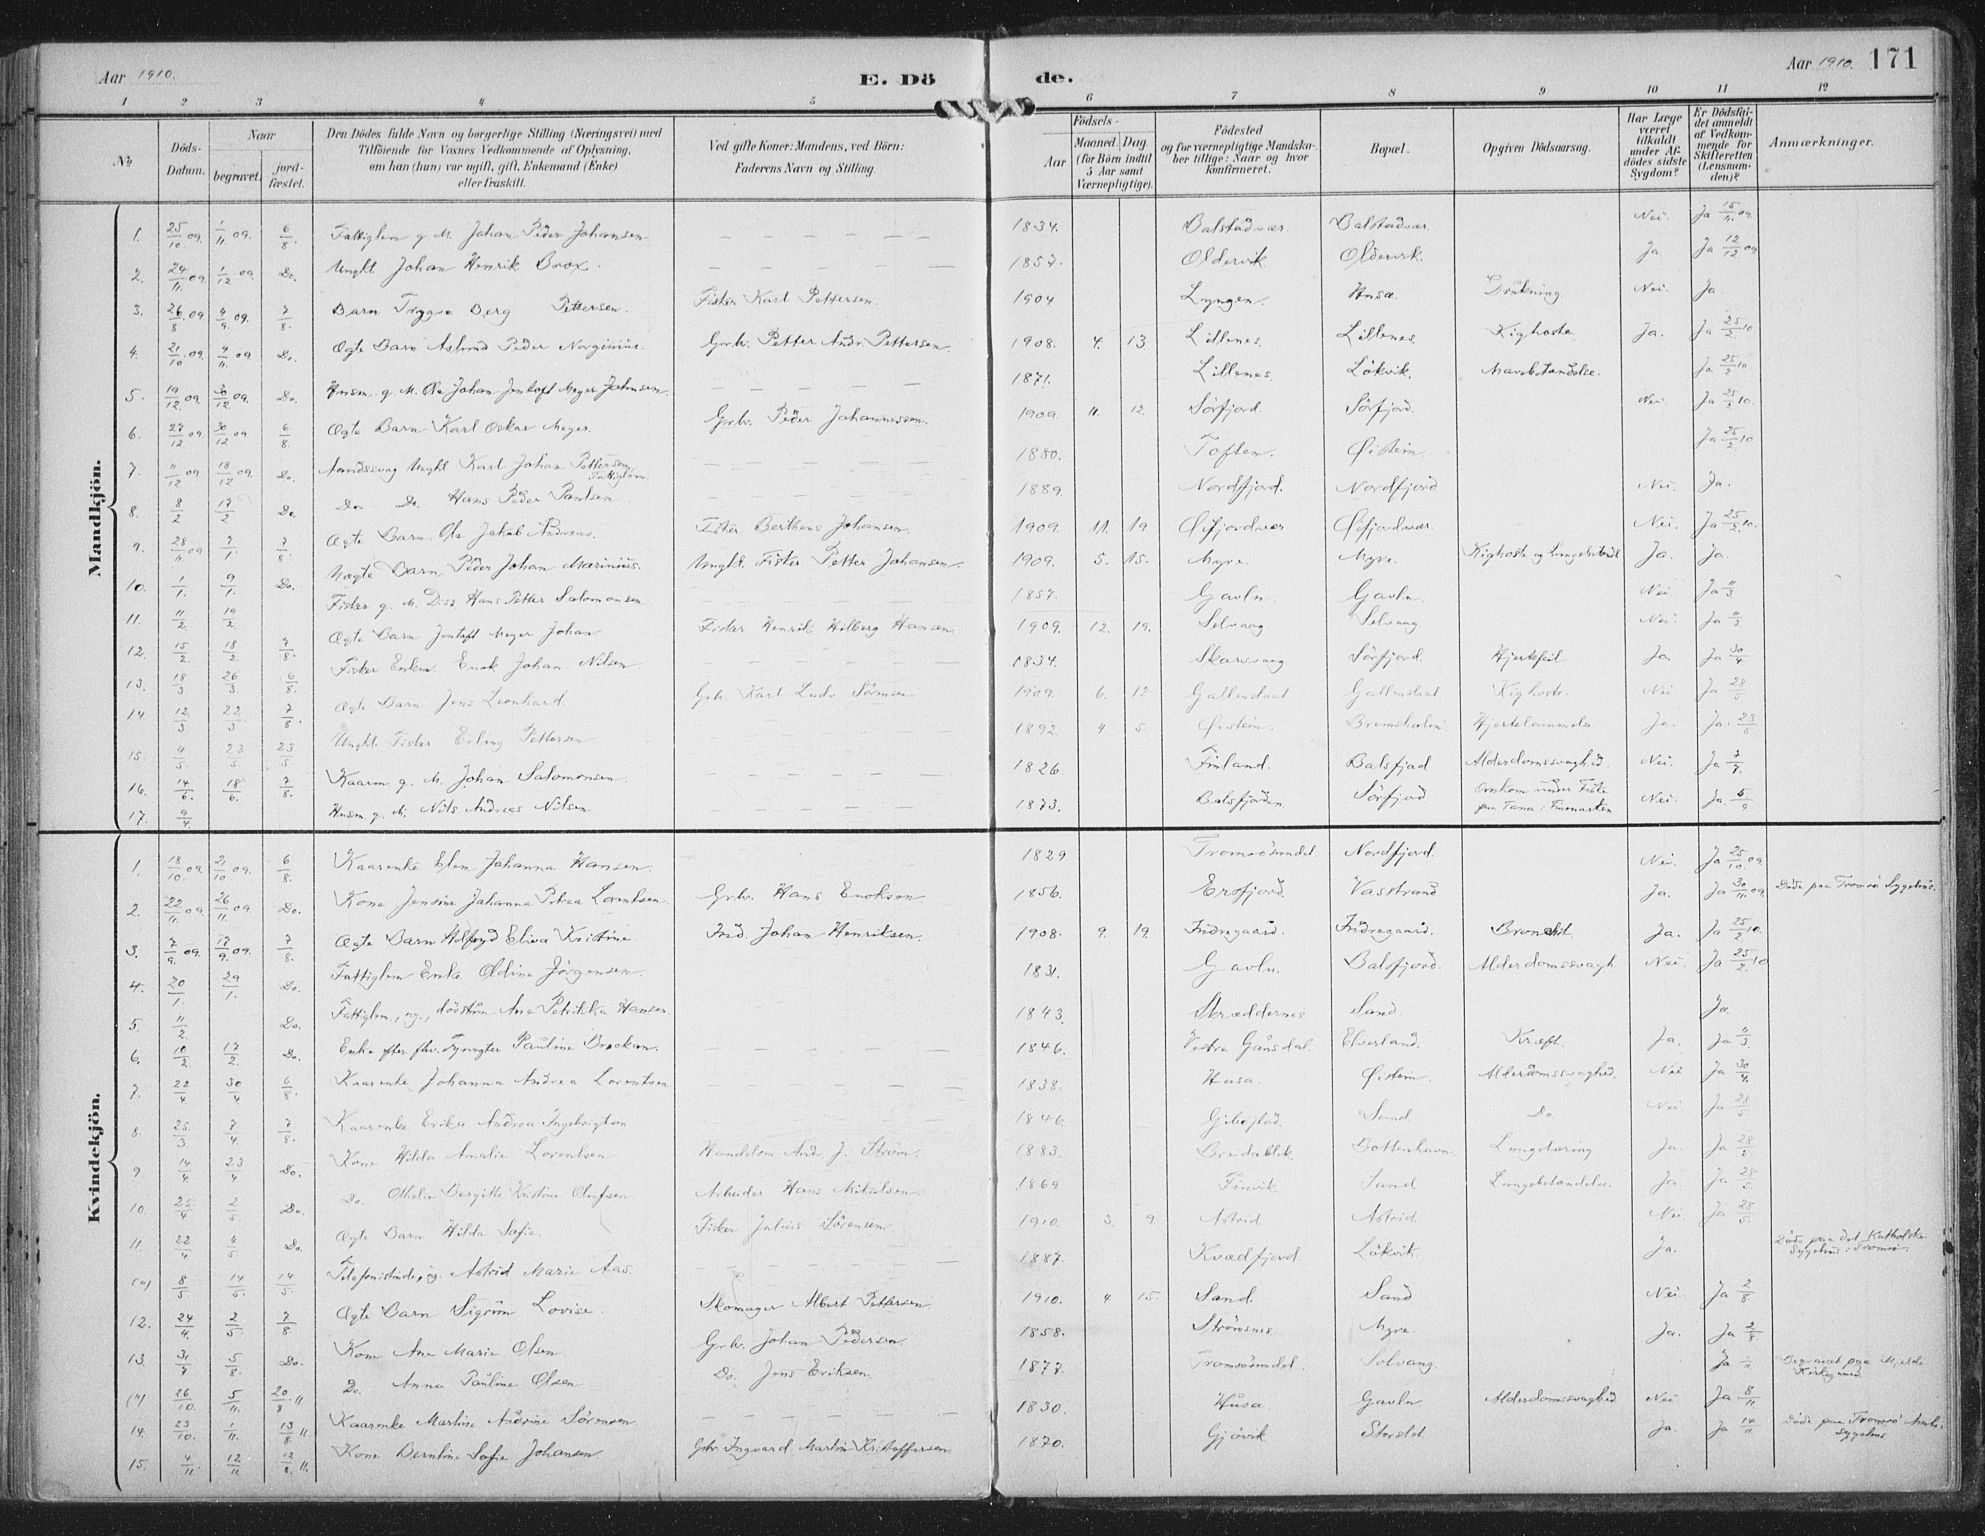 Aar 1910.
E. Dö
de.
Aar 1910. 171
1 2 3 4 5 6 7 8 9 10 11 12
No
Döds-Datum.
Naar
begravet.
jord-fæstet.
Den Dödes fulde Navn og borgerlige Stilling (Næringsvei) med
Tilföiende for Voxnes Vedkommende af Oplysning,
om han (hun) var ugift, gift, Enkemand (Enke)
eller fraskilt.
Ved gifte Koner: Mandens, ved Börn:
Faderens Navn og Stilling.
Födsels-
Aar
Maaned. Dag.
(for Börn indtil
5 Aar samt
Værnepligtige).
Födested
og for værnepligtige Mandska-
ber tillige: Naar og hvor
konfirmeret.
Bopæl.
Opgiven Dödsaarsag.
Har Læge
været
tilkaldt
under Af-
dödes sidste
Sygdom?
Er Dödsfal-
det anmeldt
af Vedkom-
mende for
Skifteretten
(Lensman-
den)?
Anmærkninger.
Mandkjön.
1. 25/10 09. 1/11 09. 6/8. Fattiglem g. M. Johan Peder Johansen 1834. Balstadvær Balstadvær. Nei. Ja 15/11 09.
2. 24/11 09. 1/12 09. Do. Ungkl. Johan Henrik Brox. 1857. Oldervik Oldervik. Ja. Ja 12/12 09
3. 26/8 09. 4/9 09. 7/8. Barn Trygve Berg Pettersen. Fisker Karl Pettersen. 1904 Lyngen. Husa. Drukning. Nei. Ja.
4. 21/10 09. 4/11. Do. Ægte Barn Aslund Peder Norginius. Grbr. Petter Andr. Pettersen. 1908. 4. 13 Lillenes. Lillenes. Kighoste Ja. Ja 25/2 10
5. 19/12 09. 30/12 09. Do. Husm. g. M. Ole Johan Jentoft Meyer Johnsen 1871. Lillenes. Lökvik. Mavebetændelse. Ja 25/2 10.
6. 27/12 09 30/12 09 6/8 Ægte Barn Karl Oskar Meyer. Grbr. Peder Johannessen. 1909. 11. 12. Sörfjord. Sörfjord. Nei. Ja 25/2 10.
7. 11/12 09. 18/12 09. Do. Aandssvag Ungkl. Karl Johan Pettersen Fattiglem 1880. Toften. Øistein. Ja 25/2 10
8. 8/2 17/2 Do. Do Do. Hans Peder Paulsen 1889. Nordfjord. Nordfjord Nei. Ja.
9. 28/11 09 7/1. 7/8. Ægte Barn Ole Jakob Andreas. Fisker Berthens Johansen. 1909. 11. 19. Øifjordvær Øifjordvær. Nei. Ja 25/2 10.
10. 1/1. 9/1. Do. Uægte Barn Peder Johan Marinius. Ungkl. Fisker Petter Johansen. 1909. 5. 15. Myre. Myre. Kighoste og Lungebetænd. Ja. Ja.
11. 11/2 19/2. Fisker g. M. Diss. Hans Petter Salomonsen 1857. Gavln. Gavln. Nei Ja 11/3.
12. 15/2. 18/2 7/8. Ægte Barn Jentoft Meyer Johan. Fisker Henrik Hilberg Hansen. 1909. 12. 19. Selvaag Selvaag Nei. Ja 11/3
13. 18/3 26/3. 6/8. Fisker Enkm. Enok Johan Nilsen 1834. Skarsvaag Sörfjord. Hjertefeil Ja. Ja 30/4
14 12/3 22/3 7/8. Ægte Barn Jens Leonhard Grbr. Karl Ludv. Sörensen 1909. 6. 12 Gallenskaat Gallenskaat Kighoste. Nei. Ja 28/5
15. 4/5. 23/5 23/5 Ungkl. Fisker Erling Pettersen 1892 4 5. Øistein. Bremsholm Hjertelammelse Ja. Ja. 23/5
16. 14/6. 18/6. 7/8. Kaarm. g. M. Johan Salomonsen. 1826. Finland. Balsfjord Alderdomssvaghed. Nei. Ja 7/7.
17. 9/4. Husm. g. M. Nils Andreas Nilsen 1873. Balsfjorden Sörfjord Omkom under Fiske paa Tana i Finmarken Nei. Ja. 5/9
Kvindekjön.
1. 18/10 09. 21/10 09. 6/8. Kaarenke Elen Johanna Hansen. 1829. Tromsösundet Nordfjord. Nei. Ja 25/10 09.
2. 22/11 09. 26/11 09. Do. Kone Jensine Johanna Petrea Lorentsen. Grbr. Hans Enoksen 1856. Ersfjord. Vasstrand Ja. Ja 30/11 09. Döde paa Tromsö Sygehus.
3. 7/9. 09. 17/9. 09. 7/8. Ægte Barn Holfryd Elisa Kristine. Ind. Johan Henriksen. 1908. 9. 19. Indregaard. Indregaard. Bronchit Ja. Ja 25/2 10.
4. 20/1. 29/1. Do. Fattiglem Enke Oldine Jörgensen. 1831. Gavln. Balsfjord. Alderdomssvagh. Nei. Ja 25/2 10
5. 11/2. Do. Fattiglem, ug., dövstum Ane Petrikka Hansen 1843. Skræddernes Sand. Ja.
6. 10/2 17/2. Do. Enke efter fhv. Fyrvogter Pauline Brockan. 1846. Vestre Gausdal. Elverland. Kræft. Ja. Ja 11/3
7. 22/4 30/4. 6/8 Kaarenke Johanna Andrea Lorentsen 1838. Husa. Øistein. Alderdomssvaghed. Nei Ja 30/4.
8. 25/3 7/4. 7/8. Kaarenke Erika Andrea Ingebrigtsen 1846. Gibostad. Sand Do Nei Ja 28/5.
9 14/4 23/4 Do. Kone Hilda Amalie Lorentsen Handelsm. And. J. Ström. 1883. Breidablik. Bottenhavn. Lungetæring Ja. Ja 28/5.
10. 25/4 2/5. Do. Do. Othelie Bergitte Kristine Olufsen Arbeider Hans Mikalsen. 1869 Finvik Sand Lungebetændelse. Ja. Ja 28/5.
11. 22/4 4/5. Do. Ægte Barn Hilda Sofie. Fisker Julius Sörensen 1910. 3. 9. Astrid Astrid. Nei Ja 28/5.
(a) 8/5 14/5. 14/5. Telefonistinde, ug. Astrid Marie Aas. 1887. Kvædfjord Lökvik. Ja. Döde paa det Katholske Sygehus i Tromsö.
12. 24/4. 2/5. 7/8 Ægte Barn Sigrun Lovise. Skomager Albert Pettersen 1910. 4. 15. Sand. Sand Nei. Ja 2/8
13. 31/7 5/8. Do. Kone Ane Marie Olsen Grbr. Johan Pedersen. 1858. Strömsnes Myre. Ja. Ja 2/8
26/10. 5/11. 20/8. 11 Do. Anna Pauline Olsen Do. Jens Eriksen. 1877. Tromsösundet. Solvang. Ja Begravet paa Mjelde Kirkegaard
14. 23/10. 1/11. 13/8 11. Kaarenke Martine Andrine Sörensen. 1830. Husa. Gavln Alderdomssvaghed. Nei Ja 8/11
15. 4/11. 12/11. 12/8. 11. Kone Berntine Sofie Johansen. Grbr. Ingvard Martin Kristoffersen 1870. Gjövik Storslet. Ja. Ja 14/11. Döde paa Tromsö Amts-Sygehus